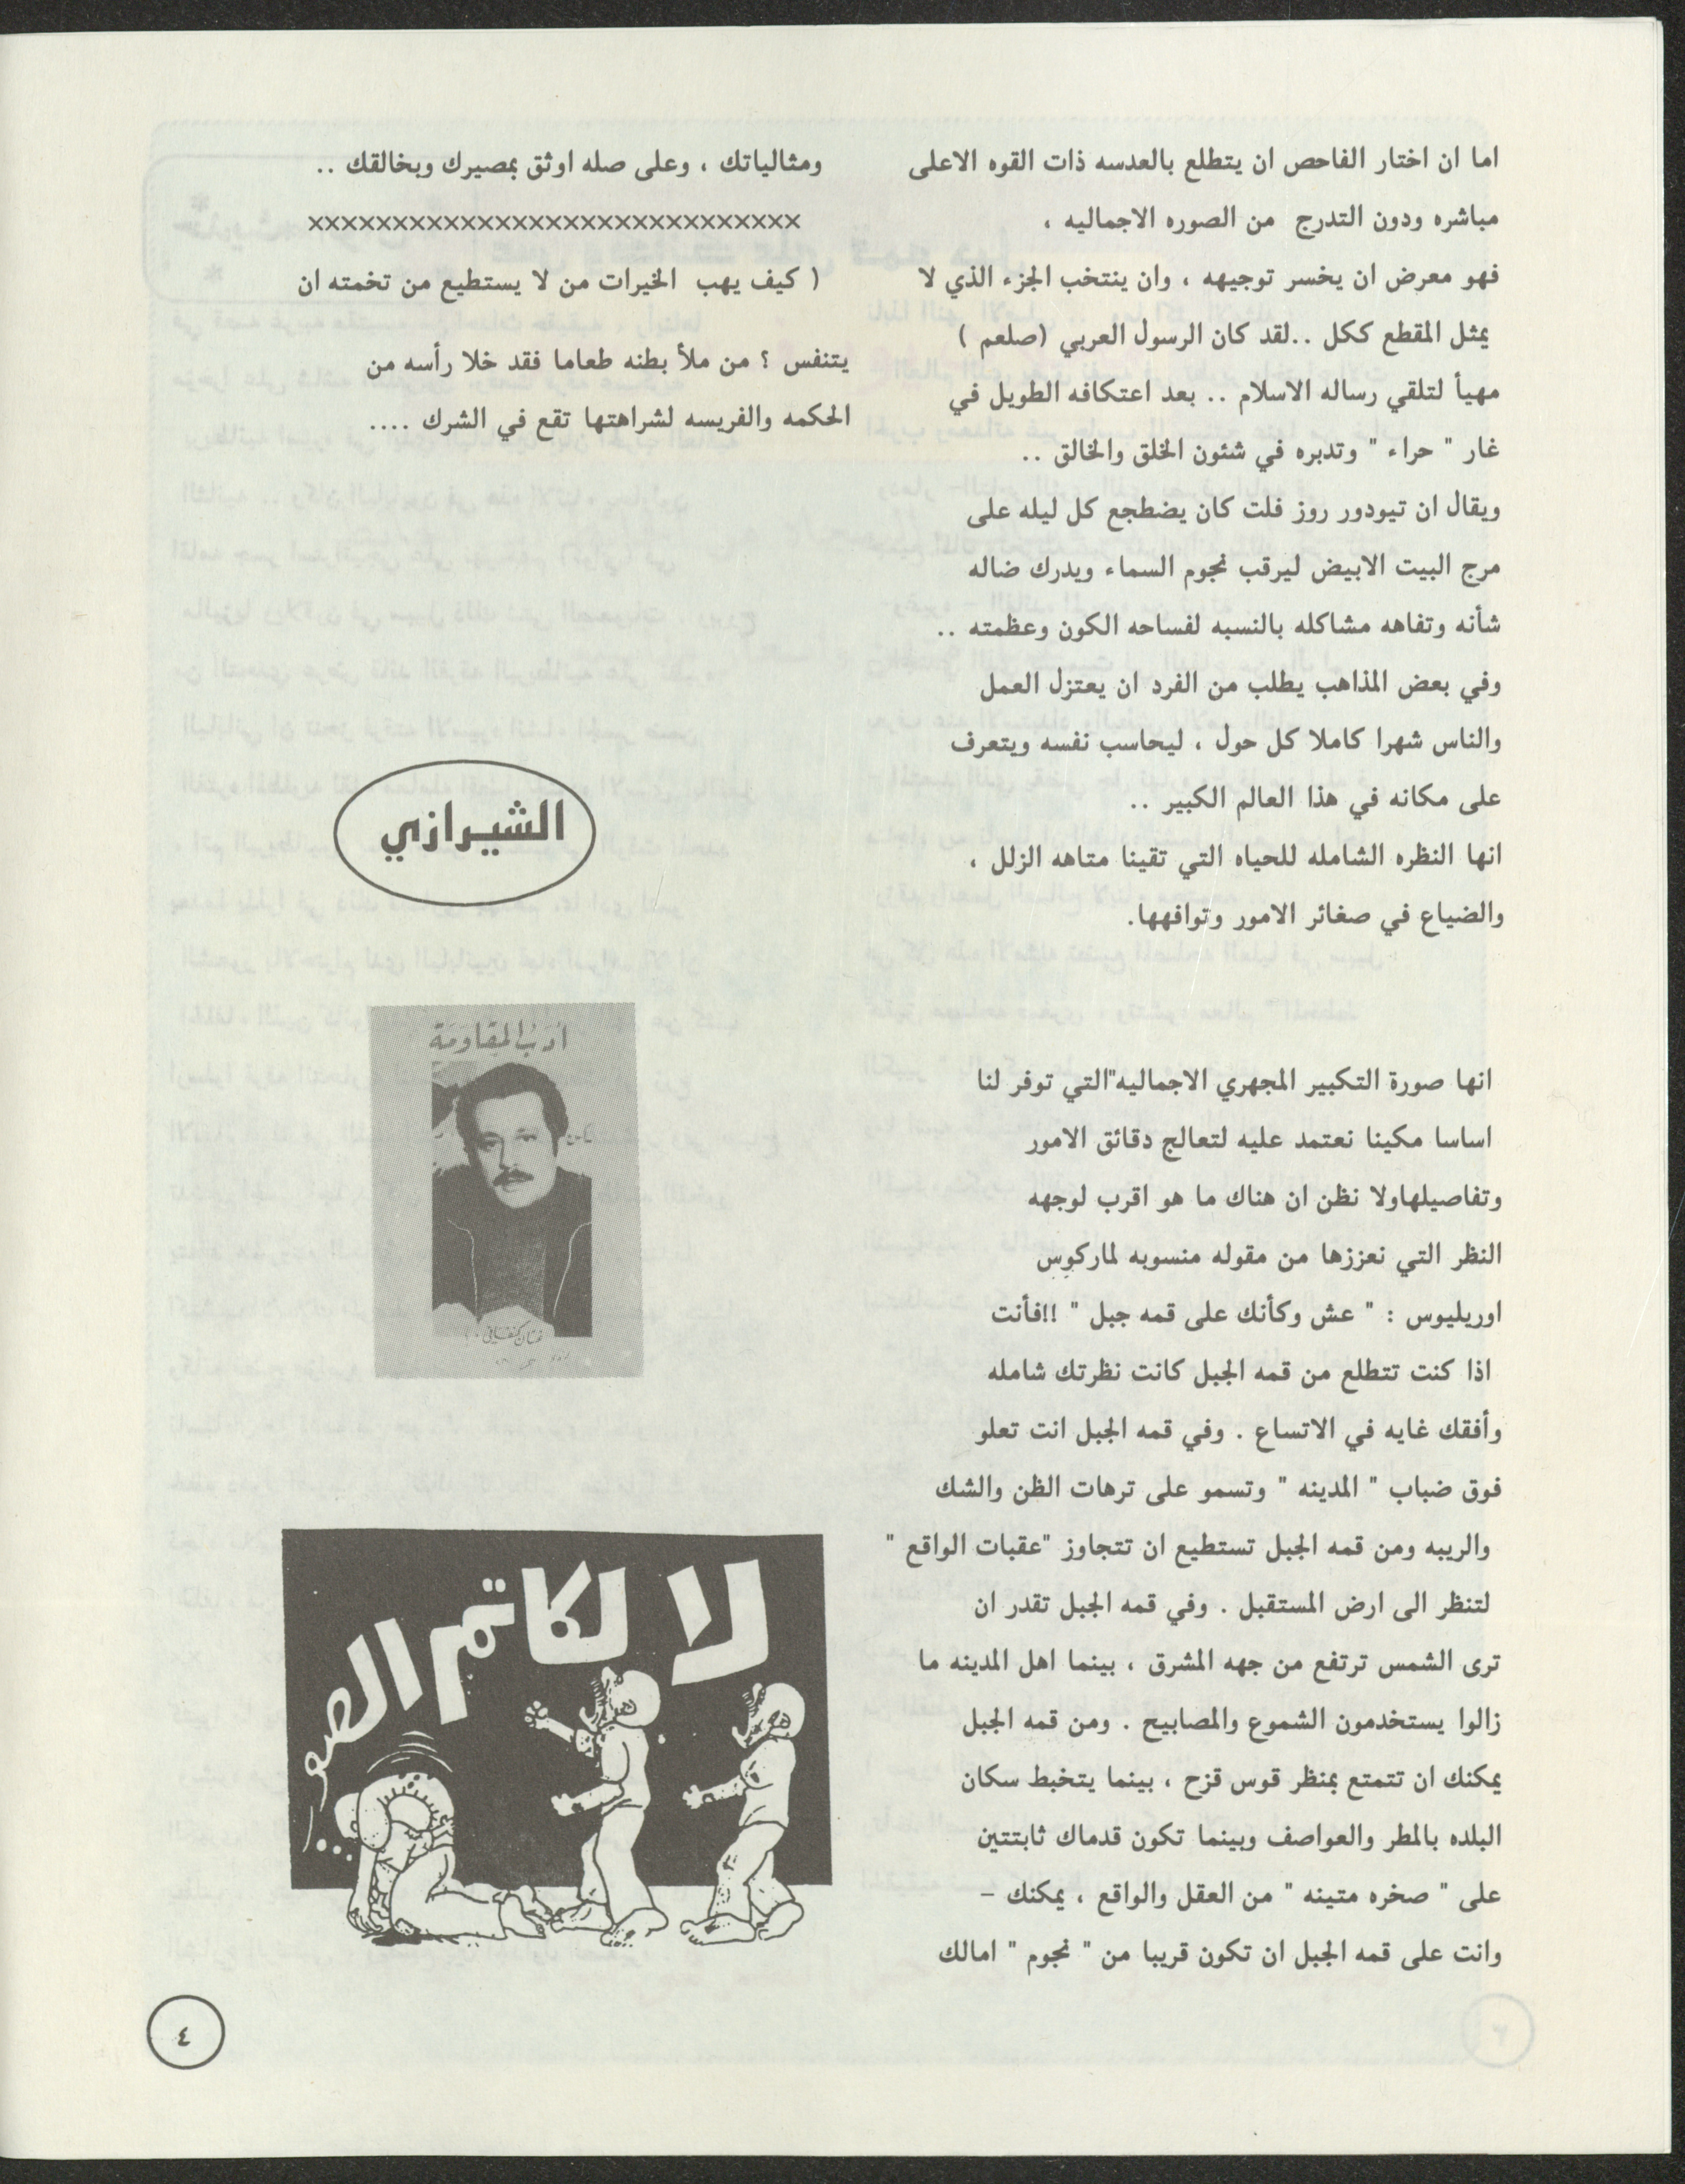 اما ان اختار الفاحص ان يتطلع بالعدسه ذات القوه الاعلى
مباشره ودون التدرج من الصوره الاجماليه ،
فهو معرض ان يخسر توجيهه ، وان ينتخب الجزء الذي لا
يمثل المقطع ككل ..لقد كان الرسول العربي (صلعم )
مهيأ لتلقي رساله الاسلام .. بعد اعتكافه الطويل في
غار " حراء " وتدبره في شئون الخلق والخالق ..
ويقال ان تيودور روز فلت كان يضطجع كل ليله على
مرج البيت الابيض ليرقب نجوم السماء ويدرك ضاله
شأنه وتفاهه مشاكله بالنسبه لفساحه الكون وعظمته ..
وفي بعض المذاهب يطلب من الفرد ان يعتزل العمل
والناس شهرا كاملا كل حول ، ليحاسب نفسه ويتعرف
على مكانه في هذا العالم الكبير ..
انها النظره الشامله للحياه التي تقينا متاهه الزلل ،
والضياع في صغائر الامور وتوافهها.
انها صورة التكبير المجهري الاجماليه"التي توفر لنا
اساسا مكينا نعتمد عليه لتعالج دقائق الامور
وتفاصيلهاولا نظن ان هناك ما هو اقرب لوجهه
النظر التي نعززها من مقوله منسوبه لماركوس
اوريليوس : " عش وكأنك على قمه جبل " !!فأنت
اذا كنت تتطلع من قمه الجبل كانت نظرتك شامله
وأفقك غايه في الاتساع . وفي قمه الجبل انت تعلو
فوق ضباب " المدينه " وتسمو على ترهات الظن والشك
والريبه ومن قمه الجبل تستطيع ان تتجاوز "عقبات الواقع "
لتنظر الى ارض المستقبل . وفي قمه الجبل تقدر ان
ترى الشمس ترتفع من جهه المشرق ، بينما اهل المدينه ما
زالوا يستخدمون الشموع والمصابيح . ومن قمه الجبل
يمكنك ان تتمتع بمنظر قوس قزح ، بينما يتخبط سكان
البلده بالمطر والعواصف وبينما تكون قدماك ثابتتين
على " صخره متينه " من العقل والواقع ، يمكنك –
وانت على قمه الجبل ان تكون قريبا من " نجوم " امالك
ومثالياتك ، وعلى صله اوثق بمصيرك وبخالقك ..
×××××××××××××××××××××××××××××
( كيف يهب الخيرات من لا يستطيع من تخمته ان
يتنفس ؟ من ملأ بطنه طعاما فقد خلا رأسه من
الحكمه والفريسه لشراهتها تقع في الشرك ....
الشيرازي
أدب المقاومة
غسان كنفاني
لا لكاتم الصوت
٤